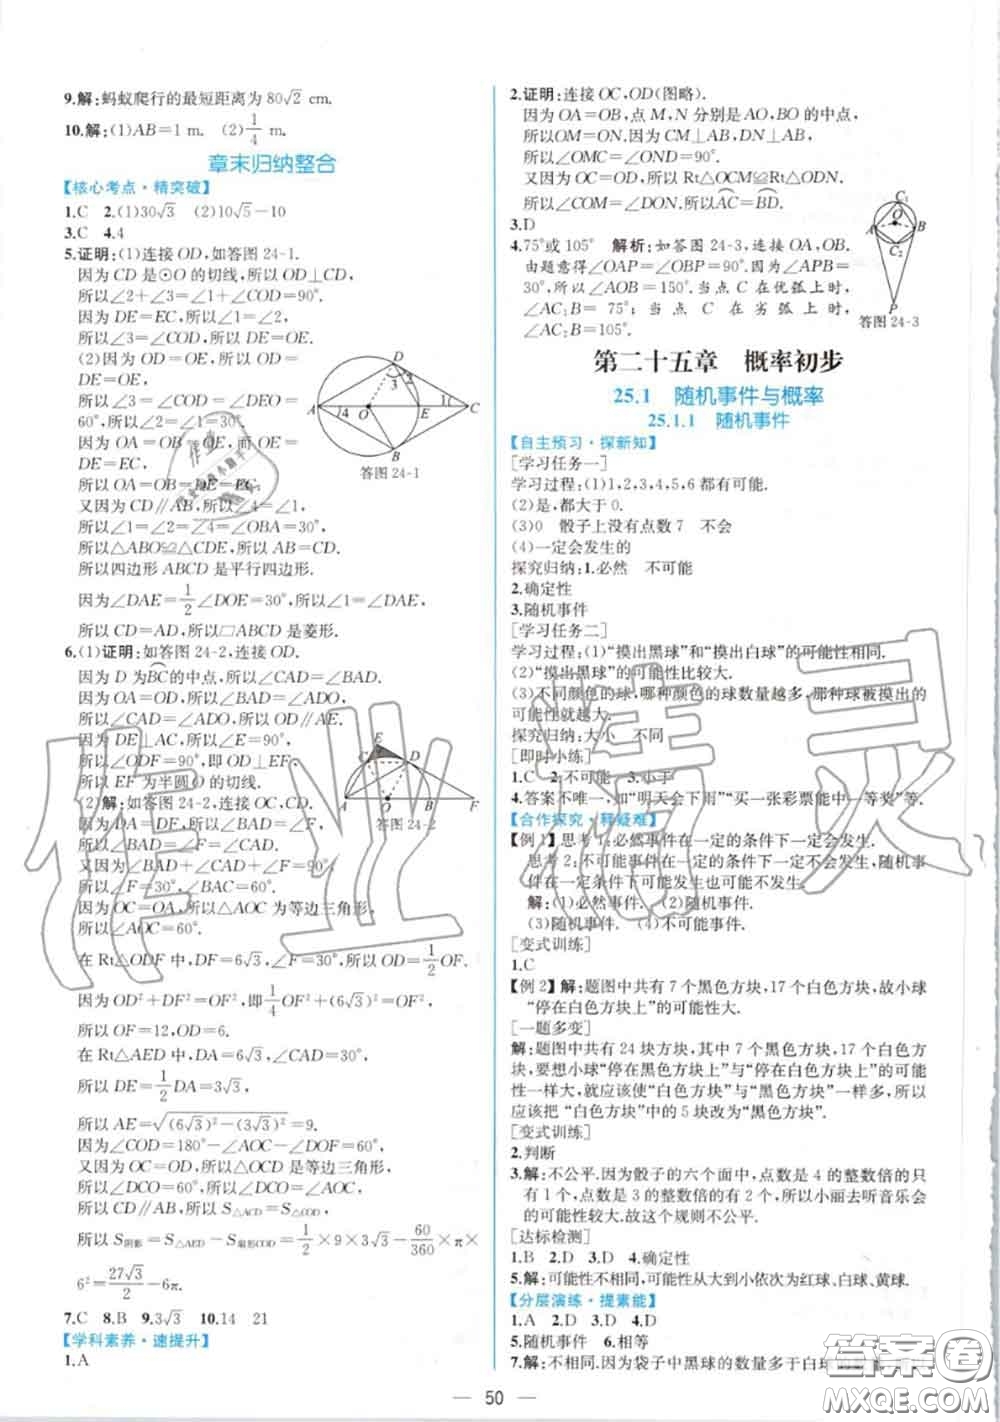 9.解:蚂蚁爬行的最短距离为80√2 cm.
10.解:(1)AB=1 m. (2)1/4 m.
章末归纳整合
【核心考点·精突破】
1.C 2.(1)30√3 (2)10√5-10
3.C 4.4
5.证明:(1)连接OD,如答图24-1.
因为CD是⊙O的切线,所以OD⊥CD,
所以∠2+∠3=∠1+∠COD=90°.
因为DE=EC,所以∠1=∠2,
所以∠3=∠COD,所以DE=OE.
(2)因为OD=OE,所以OD=
DE=OE,
所以∠3=∠COD=∠DEO=
60°,所以∠2=∠1=30°.
因为OA=OB=OE,而OE=
DE=EC,
所以OA=OB=DE=EC.
又因为CD∥AB,所以∠4=∠1,
所以∠2=∠1=∠4=∠OBA=30°,
所以△ABO≌△CDE,所以AB=CD.
所以四边形ABCD是平行四边形.
因为∠DAE=1/2∠DOE=30°,所以∠1=∠DAE,
所以CD=AD,所以□ABCD是菱形.
答图24-1
6.(1)证明:如答图24-2,连接OD.
因为D为BC的中点,所以∠CAD=∠BAD.
因为OA=OD,所以∠BAD=∠ADO,
所以∠CAD=∠ADO,所以OD∥AE.
因为DE⊥AC,所以∠E=90°,
所以∠ODF=90°,即OD⊥EF,
所以EF为半圆O的切线.
(2)解:如答图24-2,连接OC,CD.
因为DA=DF,所以∠BAD=∠F,
所以∠BAD=∠F=∠CAD.
又因为∠BAD+∠CAD+∠F=90°,
所以∠F=30°,∠BAC=60°.
因为OC=OA,所以△AOC为等边三角形,
所以∠AOC=60°.
在Rt△ODF中,DF=6√3,∠F=30°,所以OD=1/2OF.
因为OD²+DF²=OF²,即1/4OF²+(6√3)²=OF²,
所以OF=12,OD=6.
在Rt△AED中,DA=6√3,∠CAD=30°,
所以DE=1/2DA=3√3,
所以AE=√(6√3)²-(3√3)²=9.
因为∠COD=180°-∠AOC-∠DOF=60°,
又因为OC=OD,所以△OCD是等边三角形,
所以∠DCO=60°,所以∠DCO=∠AOC,
所以CD∥AB,所以S△ACD=S△COD,
所以S阴影=S△AED-S扇形COD=1/2×9×3√3-60/360×π×
6²=27√3/2-6π.
答图24-2
7.C 8.B 9.3√3 10.14 21
【学科素养·速提升】
1.A
2.证明:连接OC,OD(图略).
因为OA=OB,点M,N分别是AO,BO的中点,
所以OM=ON.因为CM⊥AB,DN⊥AB,
所以∠OMC=∠OND=90°.
又因为OC=OD,所以Rt△OCM≌Rt△ODN,
所以∠AOC=∠BOD,所以AC=BD.
3.D
4.75°或105° 解析:如答图24-3,连接OA,OB,
由题意得∠OAP=∠OBP=90°.因为∠APB=
30°,所以∠AOB=150°.当点C在优弧上时,
∠AC₁B=75°;当点C在劣弧上时,
∠AC₂B=105°.
答图24-3
第二十五章 概率初步
25.1 随机事件与概率
25.1.1 随机事件
【自主预习·探新知】
[学习任务一]
学习过程:(1)1,2,3,4,5,6都有可能.
(2)是,都大于0.
(3)0 骰子上没有点数7 不会
(4)一定会发生的
探究归纳:1.必然 不可能
2.确定性
3.随机事件
[学习任务二]
学习过程:(1)“摸出黑球”和“摸出白球”的可能性相同.
(2)“摸出黑球”的可能性比较大.
(3)不同颜色的球,哪种颜色的球数量越多,那种球被摸出的
可能性就越大.
探究归纳:大小 不同
[即时小练]
1.C 2.不可能 3.小于
4.答案不唯一,如“明天会下雨”“买一张彩票能中一等奖”等.
【合作探究·释疑难】
【例1】思考1:必然事件在一定的条件下一定会发生.
思考2:不可能事件在一定的条件下一定不会发生,随机事
件在一定条件下可能发生也可能不发生.
解:(1)必然事件. (2)随机事件.
(3)随机事件. (4)不可能事件.
[变式训练]
1.C
【例2】解:题图中共有7个黑色方块,17个白色方块,故小球
“停在白色方块上”的可能性大.
[一题多变]
解:题图中共有24块方块,其中7个黑色方块,17个白色方
块,要想小球“停在黑色方块上”与“停在白色方块上”的可能
性一样大,就应该使“白色方块”与“黑色方块”一样多,所以
应该把“白色方块”中的5块改为“黑色方块”.
[变式训练]
2.判断
3.解:不公平.因为骰子的六个面中,点数是4的整数倍的只
有1个,点数是3的整数倍的有2个,所以小丽去听音乐会
的可能性较大.故这个规则不公平.
[达标检测]
1.B 2.D 3.D 4.确定性
5.解:可能性不相同,可能性从大到小依次为红球、白球、黄球.
【分层演练·提素能】
1.A 2.D 3.D 4.D
5.随机事件 6.相等
7.解:不相同.因为袋子中黑球的数量多于白球
50
作业精灵
答案圈
MXQE.COM